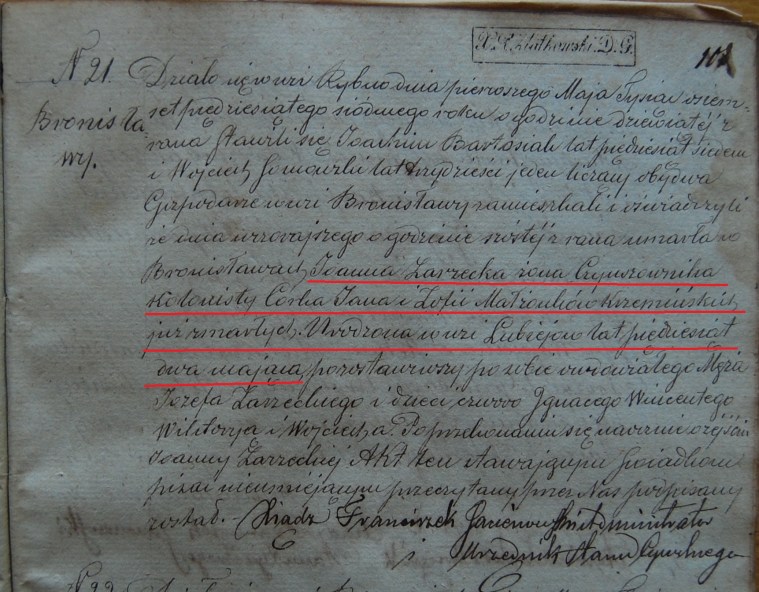 X. R. Zlatkowski. D. G.
N 21.
Bronisła
wy.
Działo się w wsi Rybno dnia pierwszego Maja Tysiąc ośem-
set piędziesiątego siódmego roku o godzinie dziewiątéj z
rana Stawili się Joachim Bartosiak lat piędziesiąt siedem
i Wojciech lat trzydzieści jeden liczący obydwa
Gospodarze w wsi Bronisławy zamieszkali i oświadczyli
że dnia wczorajszego o godzinie szóstéj z rana umarła w
Bronisławach Joanna Zarzecka żona Czynszownika
Kolonisty Córka Jana i Zofii Małżonków Krzemińskich
już zmarłych. Urodzona w wsi Lubiejow lat piędziesiąt
dwa mająca, pozostawiwszy po sobie owdowiałego Męża
Józefa Zarzeckiego i dzieci czworo Ignacego Wincentego
Wiktorya i Wojciecha. Po przekonaniu się naocznie o zejściu
Joanny Zarzeckiéj Akt ten stawającym Świadkom
pisać nieumiejącym przeczytany przez Nas podpisany
został. - Xiądz Franciszek Administrator
i Urzędnik Stanu Cywilnego